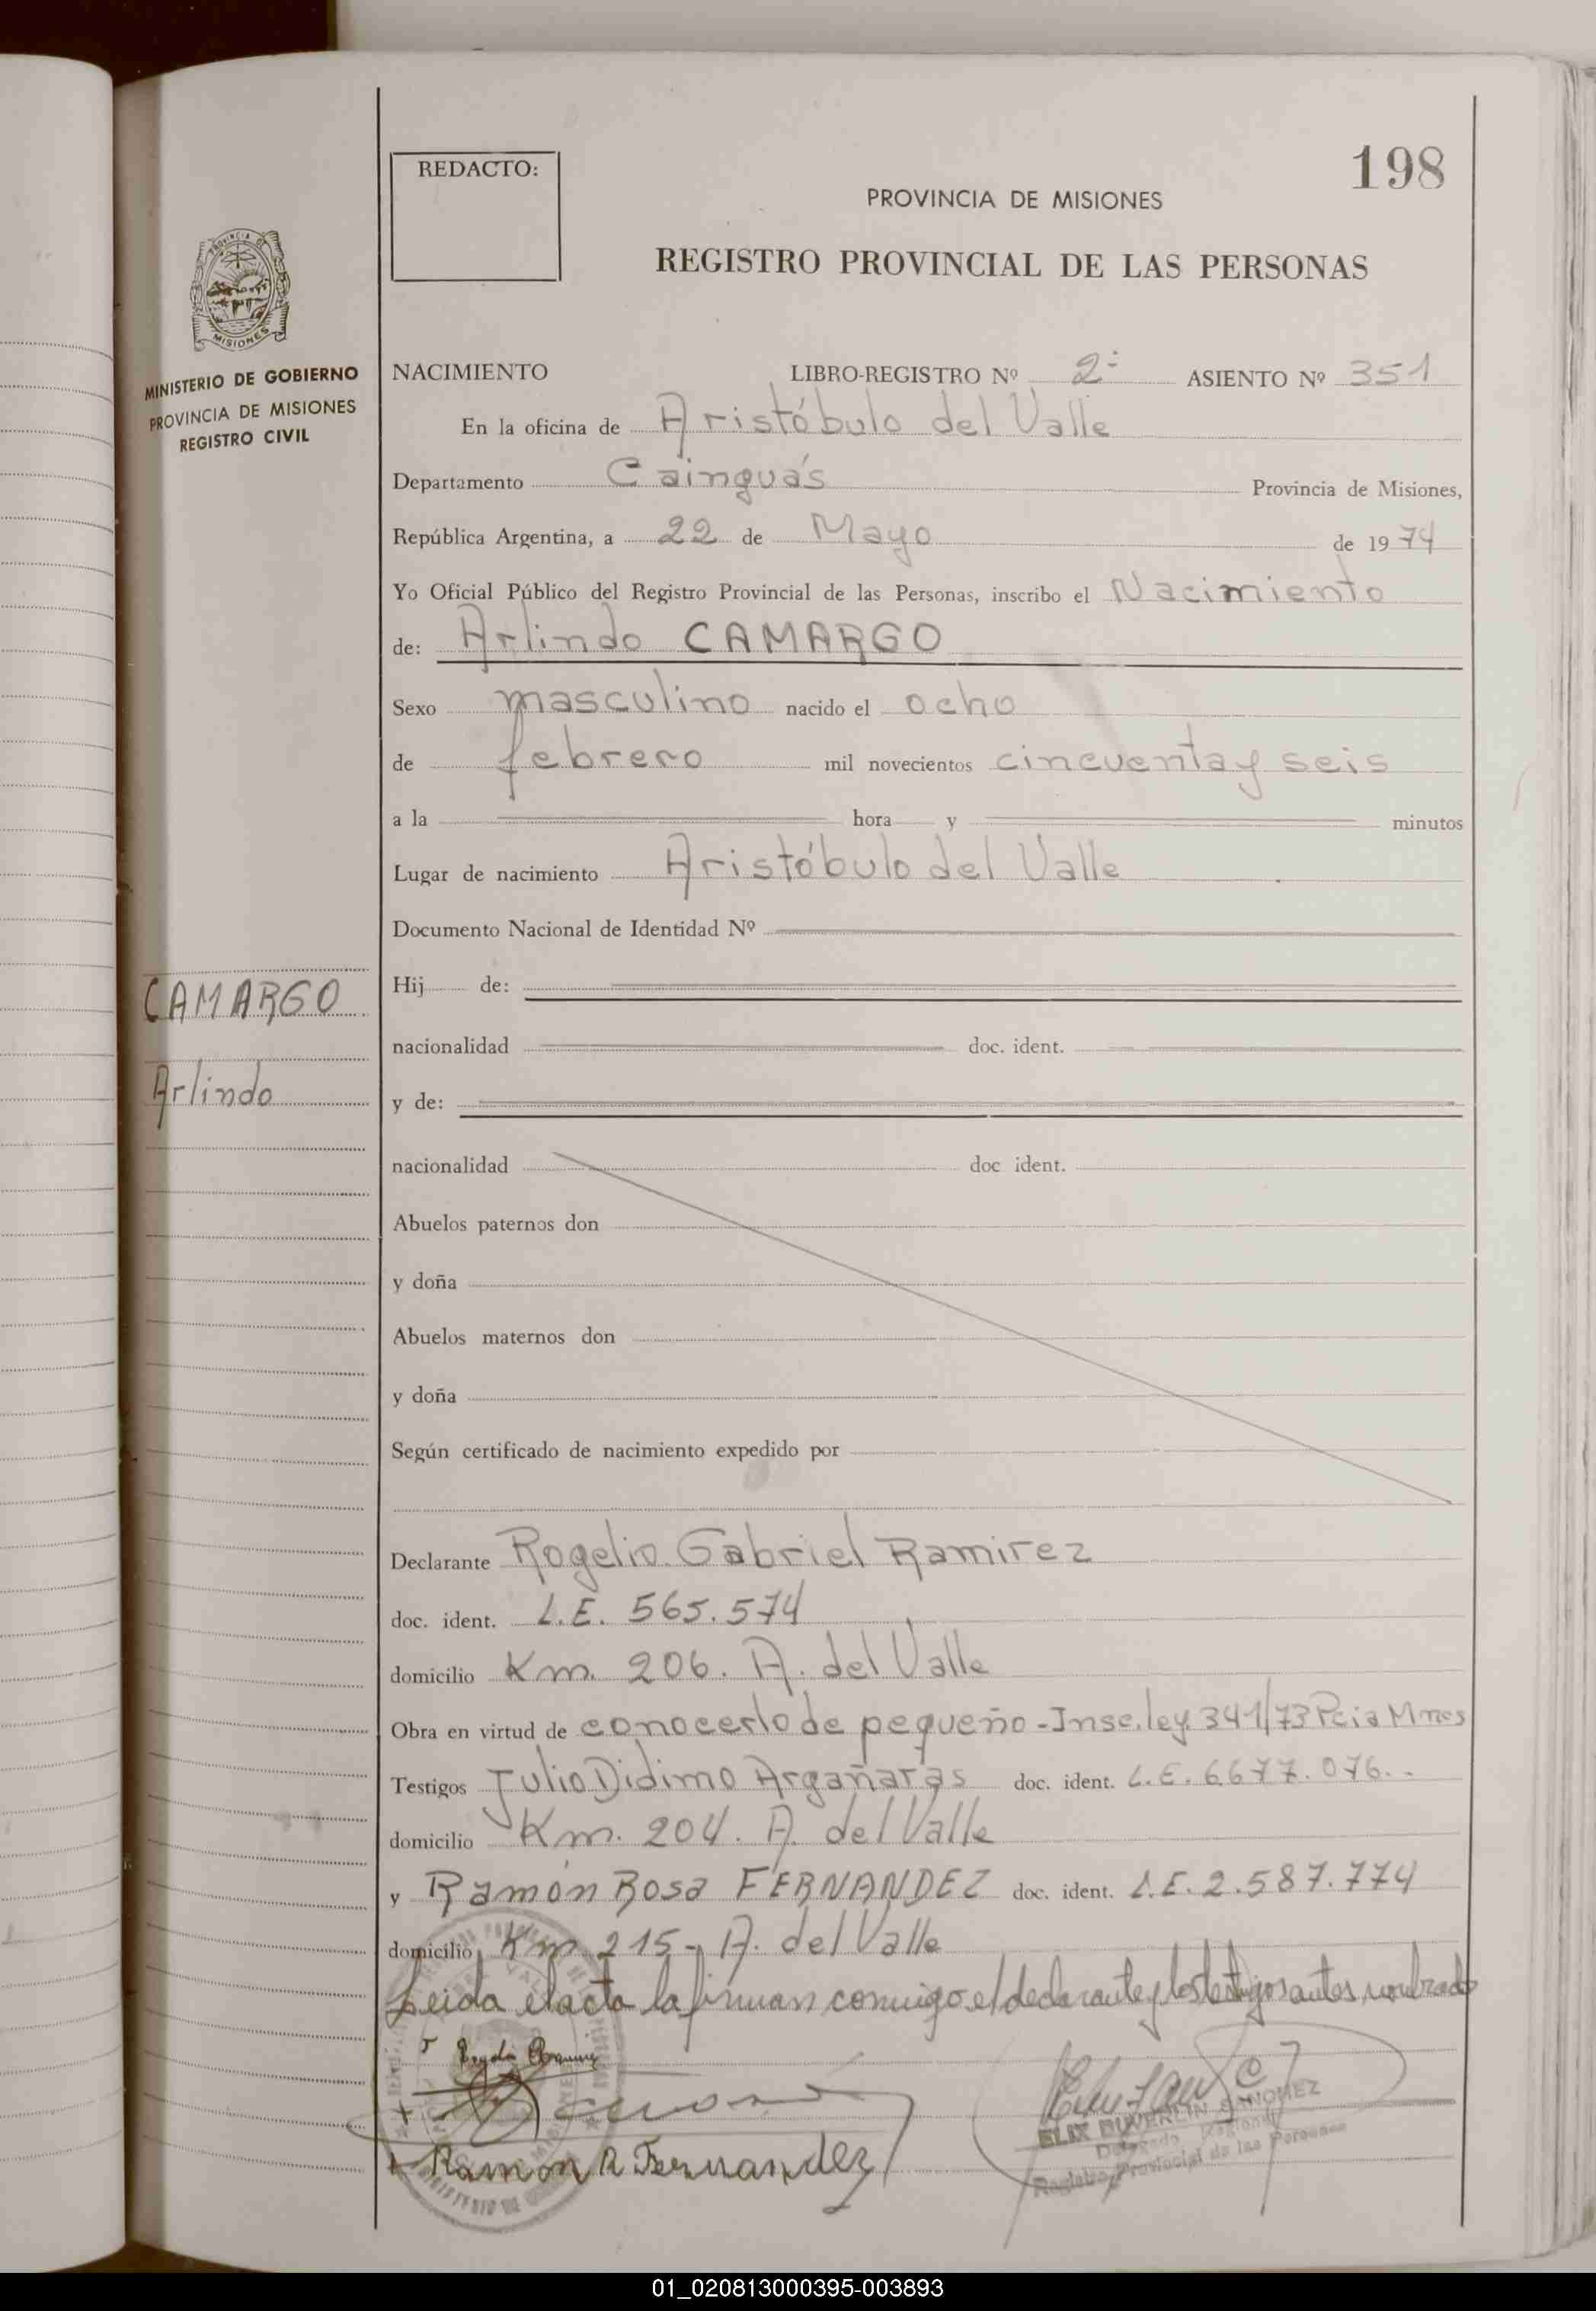 198
REDACTO:
PROVINCIA DE MISIONES
REGISTRO PROVINCIAL DE LAS PERSONAS
PROVINCIA DE
MISIONES
MINISTERIO DE GOBIERNO
PROVINCIA DE MISIONES
REGISTRO CIVIL
NACIMIENTO LIBRO-REGISTRO Nº 2º ASIENTO Nº 351
En la oficina de Aristóbulo del Valle
Departamento Cainguás Provincia de Misiones,
República Argentina, a 22 de Mayo de 1974
Yo Oficial Público del Registro Provincial de las Personas, inscribo el Nacimiento
de: Arlindo CAMARGO
Sexo masculino nacido el ocho
de febrero mil novecientos cincuenta y seis
a la hora y minutos
Lugar de nacimiento Aristóbulo del Valle
Documento Nacional de Identidad Nº
CAMARGO
Arlindo
Hij de:
nacionalidad doc. ident.
y de:
nacionalidad doc ident.
Abuelos paternos don
y doña
Abuelos maternos don
y doña
Según certificado de nacimiento expedido por
Declarante Rogelio Gabriel Ramirez
doc. ident. L.E. 565.574
domicilio Km. 206. A. del Valle
Obra en virtud de conocerlo de pequeño - Insc. ley 341/73 Pcia Mnes
Testigos Julio Didimo Argañaras doc. ident. L.E. 6677.076..
domicilio Km. 204. A. del Valle
y Ramón Rosa FERNANDEZ doc. ident. L.E. 2.587.774
domicilio Km 215- A. del Valle
Leida el acta la firman conmigo el declarante y los testigos antes nombrado
Ramon R Fernandez
Delegado Regional
Registro Provincial de las Personas
01_020813000395-003893